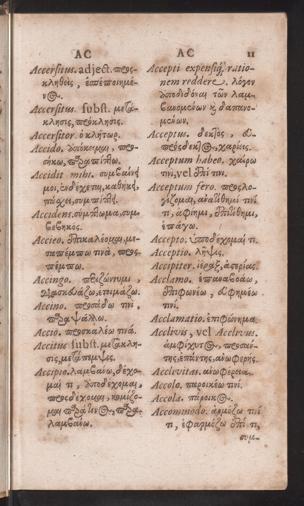 AC
Accersitus. adject. προσ-
κληθεὶς, ἐπιπεποιημέ-
νος.
Accersitus. subst. μετά-
κλησις, πρόκλησις.
Accersitor. ὁ κλήτωρ.
Accido.
Accidit mihi. συμβαίνει
μοι, ἐνδέχεται, καθήκει,
πάσχει, συμπίπτει.
Accidens. σύμπτωμα, συμ-
βεβηκός.
Accieo. ἐπικαλέομαι, με-
ταπέμπω τινὰ, προσ-
πέμπω.
Accingo. περιζώννυμι
παρασκευάζω, ἑτοιμάζω.
Accino. προσᾴδω τινι,
παραψάλλω.
Accio. προσκαλέω τινά.
Accitus subst. μετάκλη-
σις, μετάπεμψις.
Accipio. λαμβάνω, δέχο-
μαί τι, ἀποδέχομαι,
προσδέχομαι, κομίζο-
μαι παρά τινος, παρα-
λαμβάνω.
AC 11
Accepti expensiq; ratio-
nem reddere. λόγον
ἀποδιδόναι τῶν λαμ-
βανομένων καὶ δαπανο-
μένων.
Acceptus. δεκτὸς, εὐ-
πρόσδεκτος, χαρίεις.
Acceptum habeo. χαίρω
τινι, vel ἐπί τινι.
Acceptum fero. προσλο-
γίζομαι, ἀνατίθημί τινί
τι, ἀφίημι, ἐπιτίθημι,
ἐπάγω.
Accepto. ὑποδέχομαί τι.
Acceptio. λῆψις.
Accipiter. ἱέραξ, ἀστερίας.
Acclamo. ἐπαναβοάω,
ἐπιφωνέω, εὐφημέω
τινι.
Acclamatio. ἐπιφώνημα.
Acclivis, vel Acclivus.
ἀμφίκυρτος, προσάν-
της, ἐπάντης, ἀνωφερής.
Acclivitas. ἀνωφέρεια.
Accolo. παροικέω τινι.
Accola. πάροικος.
Accommodo. ἁρμόζω τινί
τι, ἐφαρμόζω ἐπί τι,
συμ-